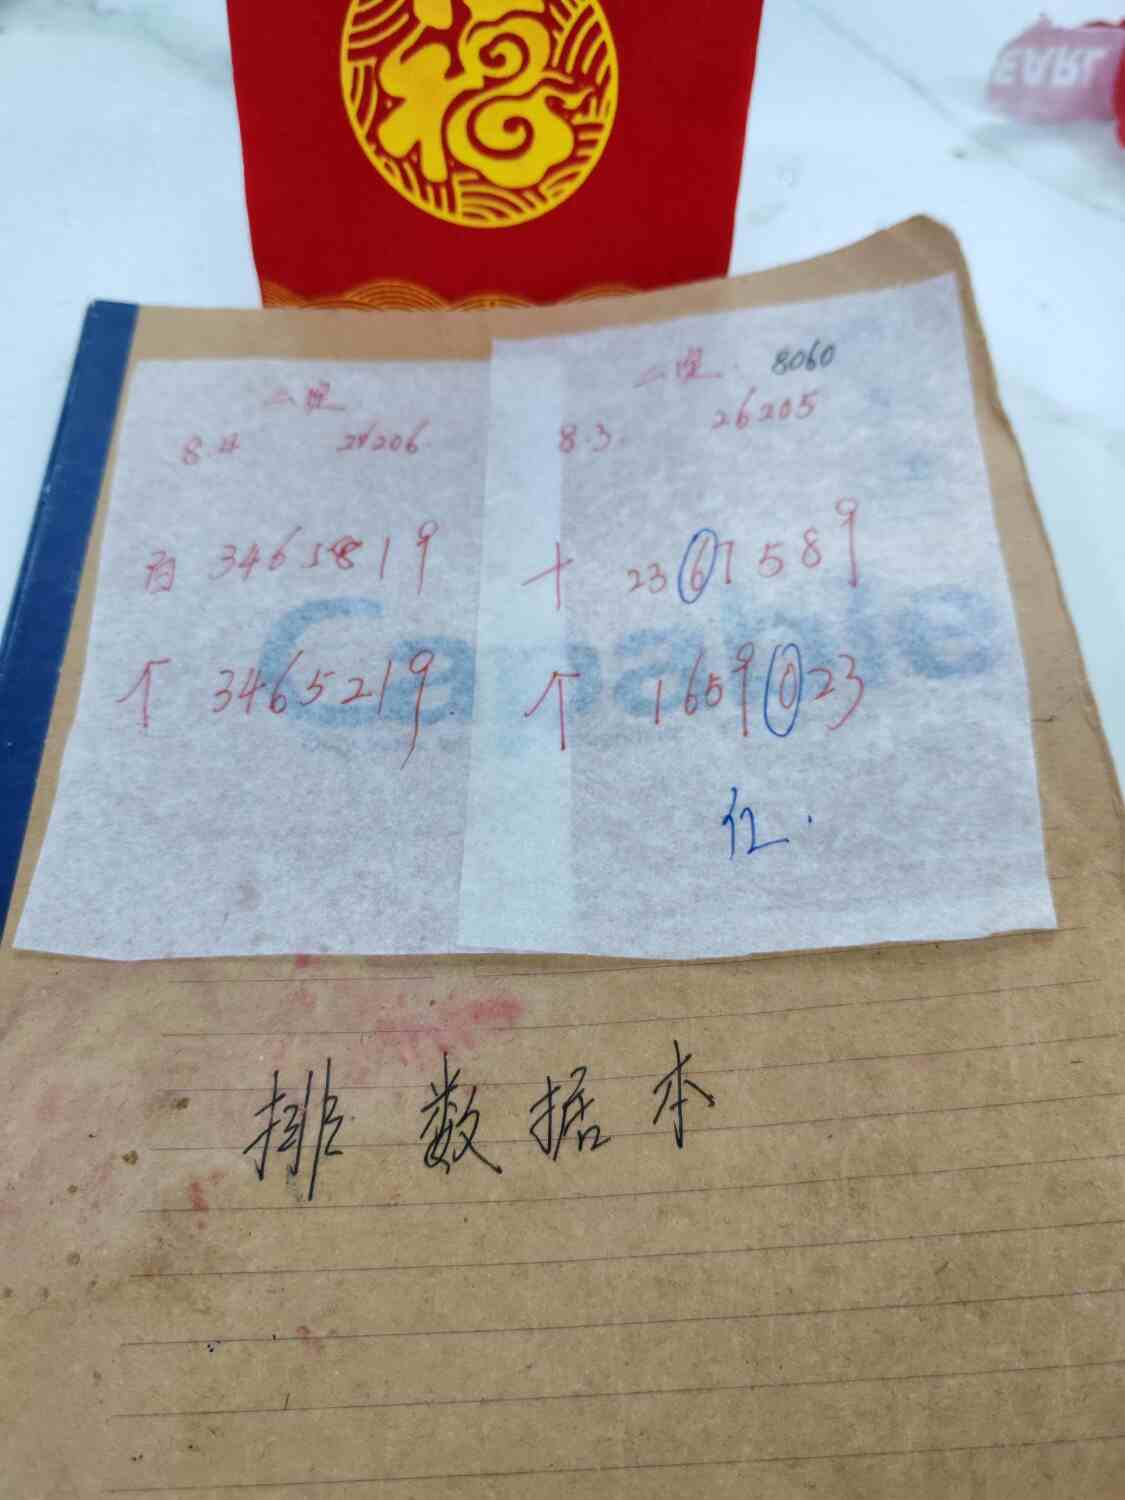 福
EARL
二定
8.4 26206.
百 3465819
个 3465219.
二定. 8060
8.3. 26205
十 2361589
个 1659023
红.
Capable
排数据本